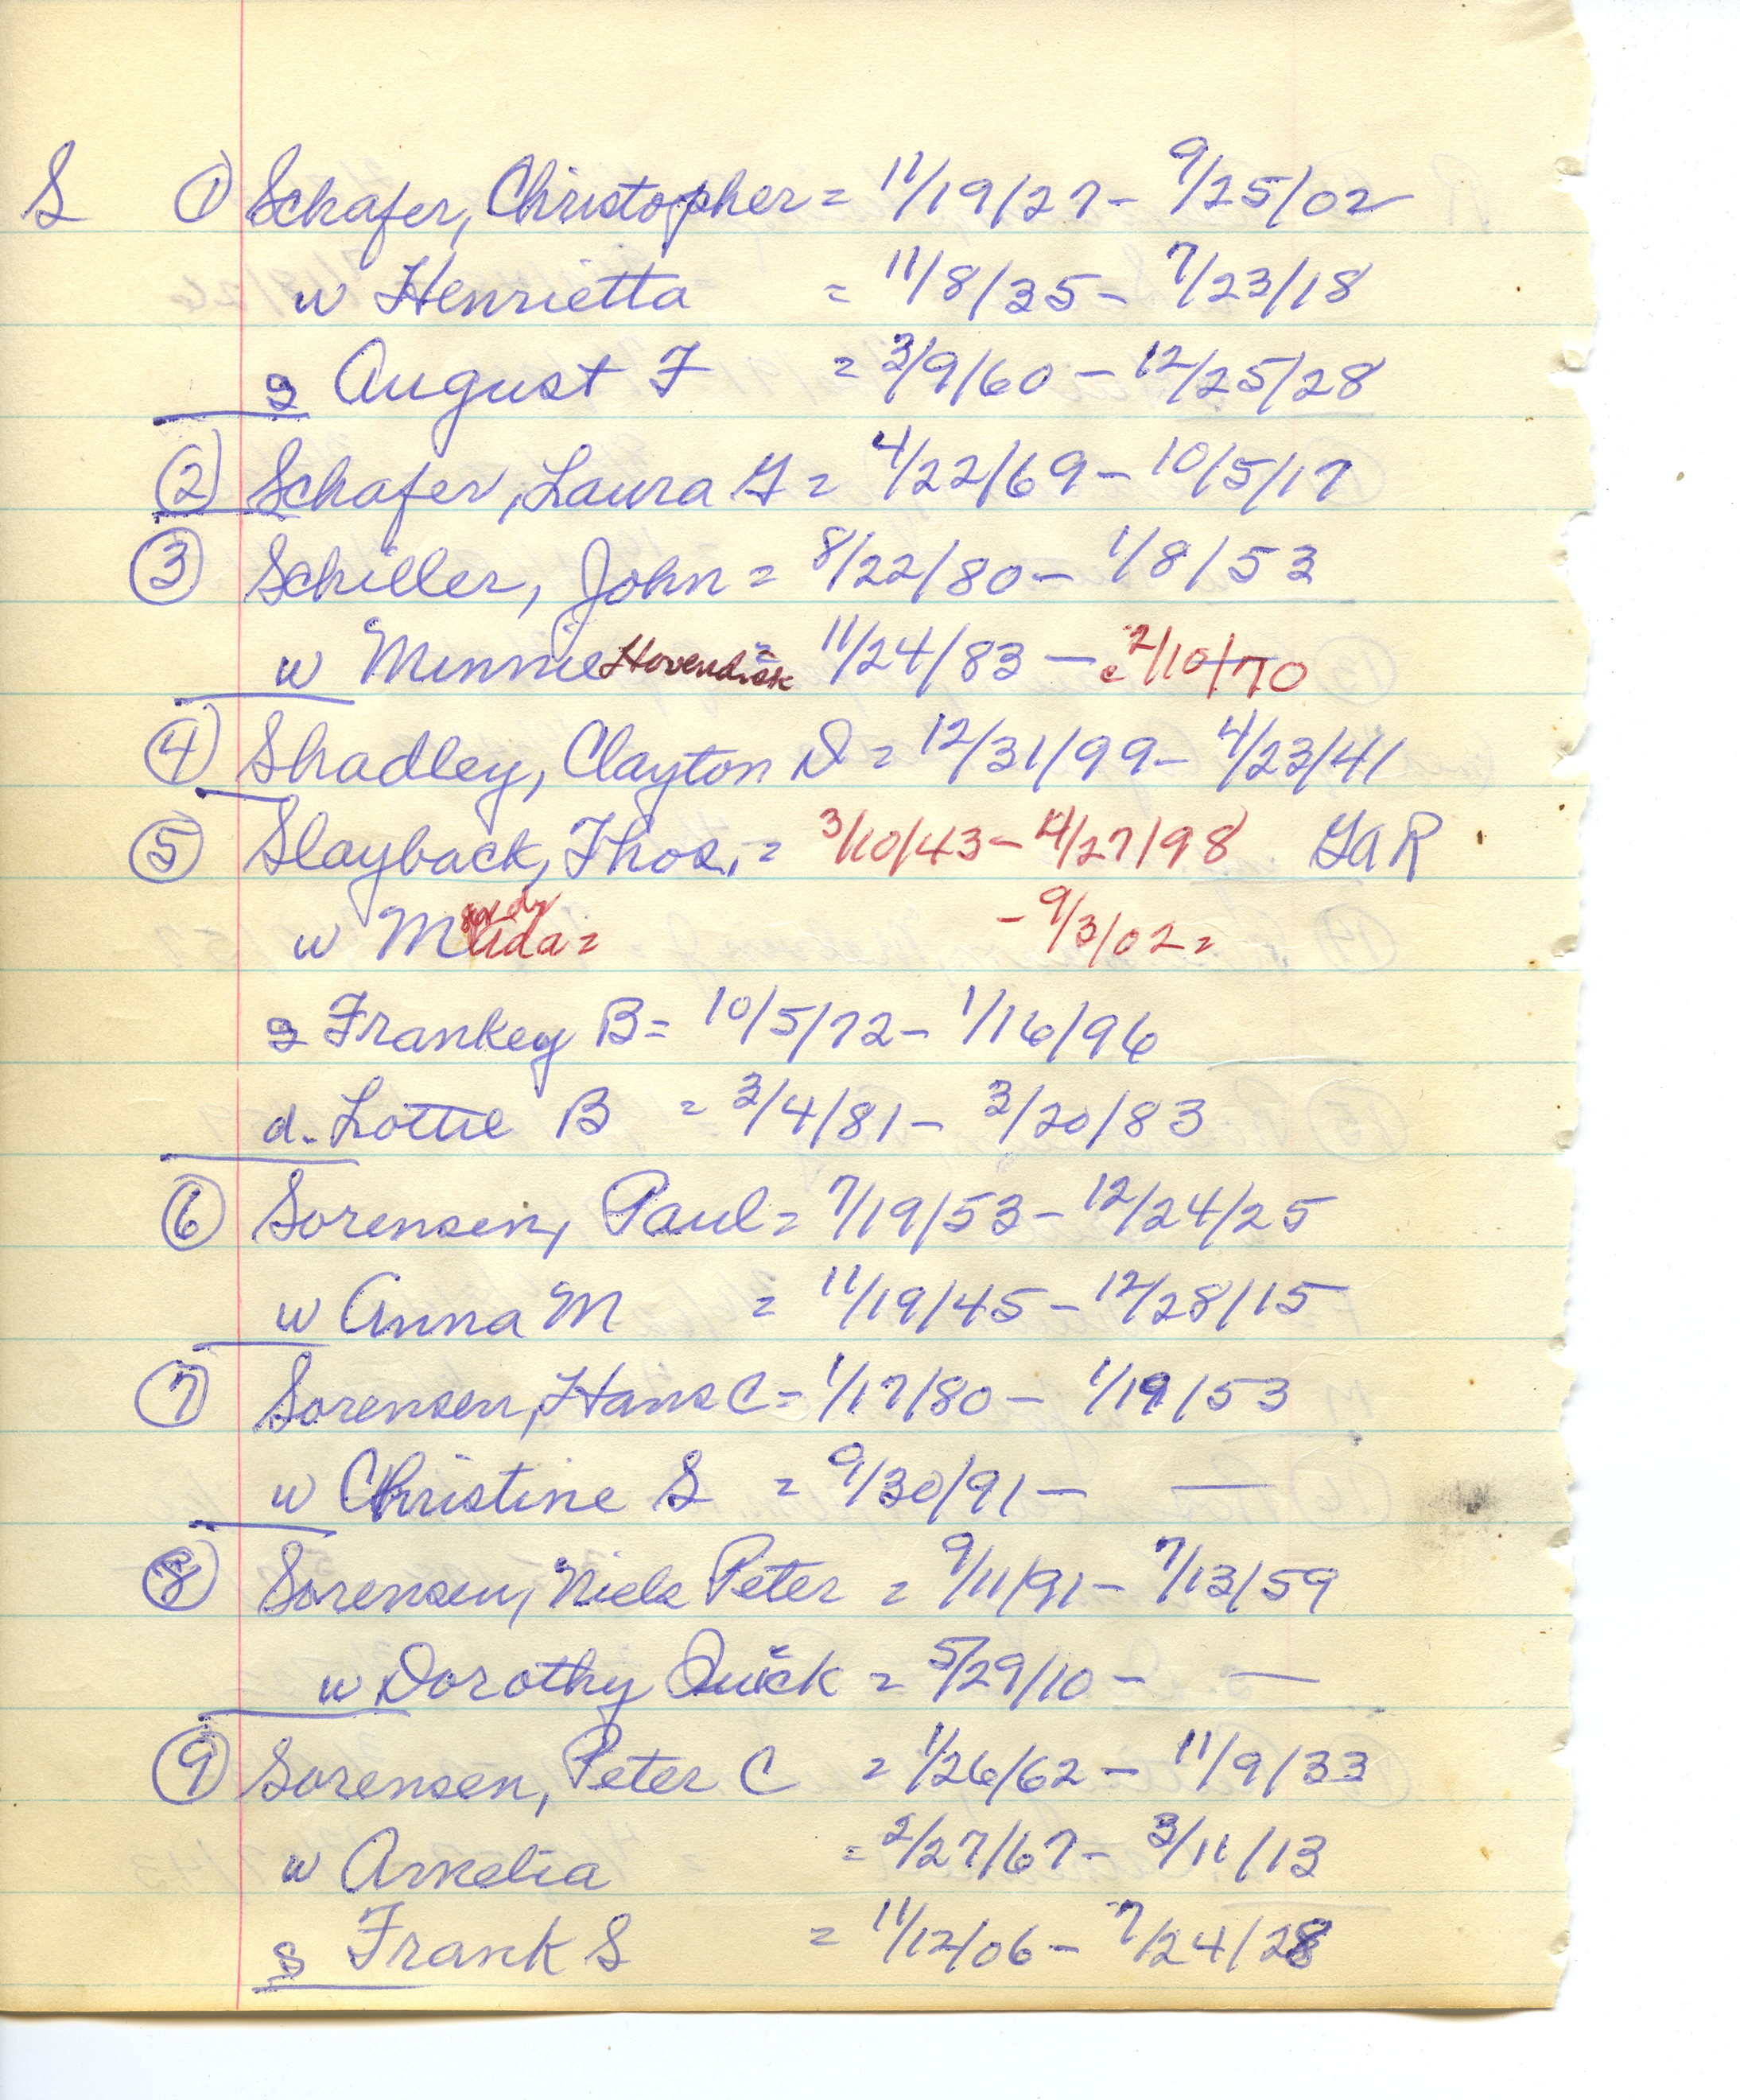 S ① Schafer, Christopher = 11/19/27 - 9/25/02
w Henrietta = 11/8/35 - 7/23/18
s August F = 3/9/60 - 12/25/28
② Schafer, Laura G = 4/22/69 - 10/5/17
③ Schiller, John = 8/22/80 - 1/8/53
w Minnie Hovendick = 11/24/83 - 2/10/70
④ Shadley, Clayton D = 12/31/99 - 4/23/41
⑤ Slayback, Thos. = 3/10/43 - 4/27/98 GAR
w M Ada = - 9/3/02 =
s Frankey B = 10/5/72 - 1/16/96
d. Lottie B = 3/4/81 - 3/20/83
⑥ Sorensen, Paul = 7/19/53 - 12/24/25
w Anna M = 11/19/45 - 12/28/15
⑦ Sorensen, Hans C = 1/17/80 - 1/19/53
w Christine S = 9/30/91 - —
⑧ Sorensen, Niels Peter = 9/11/91 - 7/13/59
w Dorothy Quick = 5/29/10 - —
⑨ Sorensen, Peter C = 1/26/62 - 11/9/33
w Amelia = 2/27/67 - 3/11/13
s Frank S = 11/12/06 - 7/24/28